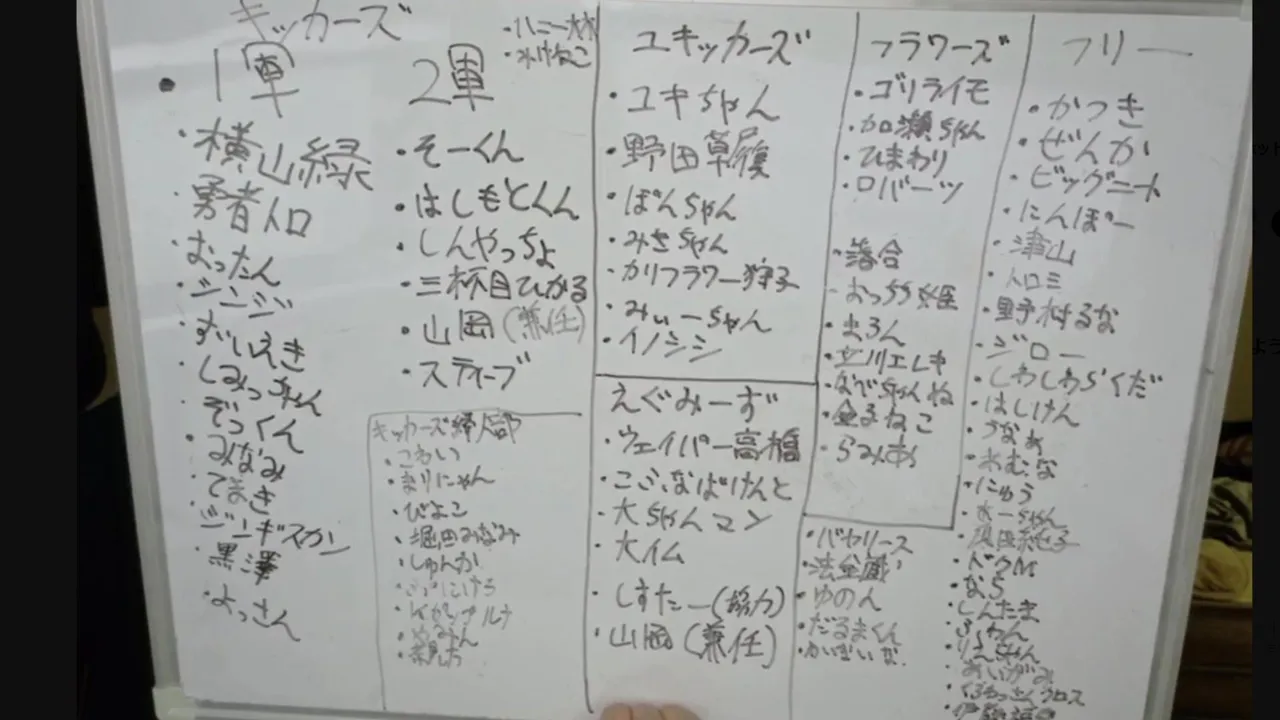 キッカーズ
1軍
・横山緑
・勇者トロ
・おったん
・ジンジン
・ずいえき
・しみっちゃん
・ぞっくん
・みなみ
・てまき
・ジンギスカン
・黒澤
・よっさん
・ハニー林
2軍
・そーくん
・はしもとくん
・しんやっちょ
・三杯目ひかる
・山岡(兼任)
・スティーブ
キッカーズ婦人部
・こわい
・まりにゃん
・ぴよこ
・堀田みなみ
・しゅんか
ユキッカーズ
・ユキちゃん
・野田草履
・ぽんちゃん
・みさちゃん
・カリフラワー狩子
・みぃーちゃん
・イノシシ
えぐみーず
・ウェイパー高橋
・こぶなばけんと
・大ちゃんマン
・大イム
・しすたー(協力)
・山岡(兼任)
フラワーズ
・ゴリライモ
・加瀬ちゃん
・ひまわり
・ロバーツ
・落合
・おっちゃ姫
・まろん
・立川エレキ
・なでちゃんね
・金子ねこ
・らみあ
・バセリース
・法金蔵
・ゆのん
・だるまくん
フリー
・かつき
・ぜんか
・ビッグニート
・にんぽー
・津山
・トロミ
・野村るな
・ジロー
・しわしわらくだ
・はしけん
・うなぁ
・れむな
・にゅう
・おーちゃん
・ドクM
・なら
・しんたま
・ふわん
・りえちゃん
・あいがみ